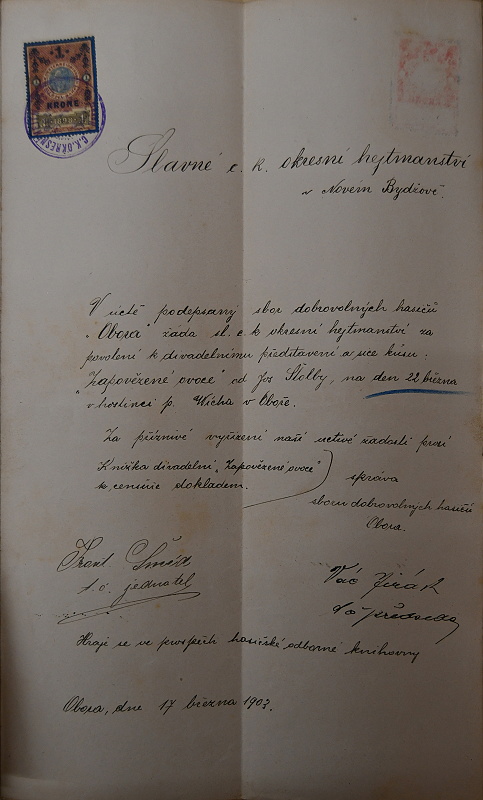 1
KRONE
C.K. OKRESNÍ
Slavné c. k. okresní hejtmanství
v Novém Bydžově.
V úctě podepsaný sbor dobrovolných hasičů
„Obora" žádá sl. c. k. okresní hejtmanství za
povolení k divadelnímu představení a sice kusu:
„Zapovězené ovoce" od Jos Štolby, na den 22 března
v hostinci p. Vícha v Oboře.
Za příznivé vyřízení naší uctivé žádosti prosí
Knížka divadelní „Zapovězené ovoce"
k censuře dokladem.
správa
sboru dobrovolných hasičů
Obora.
Frant
t. č. jednatel
Vác Jirásk
t č předseda
Hraje se ve prospěch hasičské odborné knihovny
Obora, dne 17 března 1903.